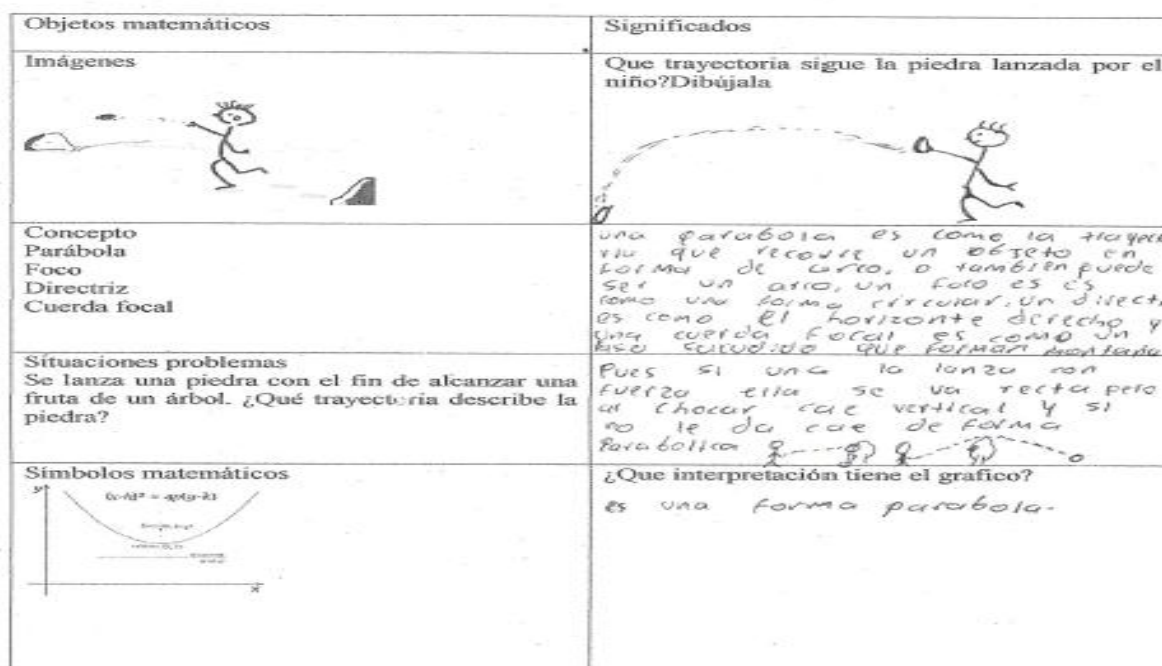 Objetos matemáticos
Significados
Imágenes
Que trayectoria sigue la piedra lanzada por el
niño?Dibújala
Concepto
Parábola
Foco
Directriz
Cuerda focal
una parabola es como la trayect
ria que recorre un objeto en
forma de arco, o también puede
ser un arco, un foco es es
como una forma circular, un directr
es como el horizonte derecho y
una cuerda focal es como un
sacudido que forman montaña
Situaciones problemas
Se lanza una piedra con el fin de alcanzar una
fruta de un árbol. ¿Qué trayectoria describe la
piedra?
Pues si una la lanza con
fuerza ella se va recta pero
al chocar cae vertical y si
no le da cae de forma
Parabolica
Símbolos matemáticos
y
(x-h)² = 4p(y-k)
x
¿Que interpretación tiene el grafico?
es una forma parabola.